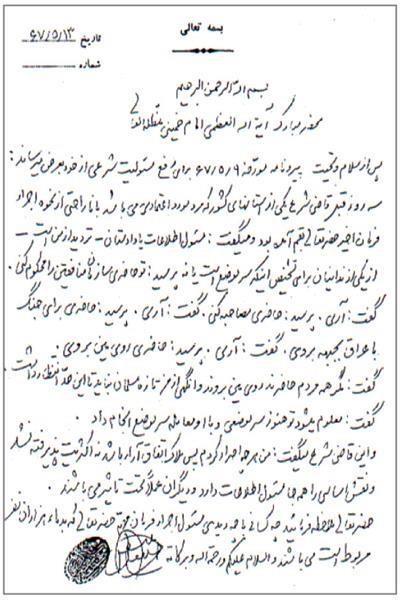 بسمه تعالی
تاریخ ۶۷/۵/۱۳
شماره
بسم الله الرحمن الرحیم
محضر مبارک آیة الله العظمی امام خمینی مدظله العالی
پس از سلام و تحیت پیرو نامه مورخه ۶۷/۵/۹ برای رفع مسئولیت شرعی از خود بعرض میرساند :
سه روز قبل قاضی شرع یکی از استانهای کشور که مرد مورد اعتمادی می باشد با ناراحتی از نحوه اجراء
فرمان اخیر حضرتعالی بقم آمده بود و میگفت : مسئول اطلاعات یا دادستان - تردید از من است -
از یکی از زندانیان برای تشخیص اینکه سر موضع است یا نه پرسید : تو حاضری سازمان منافقین را محکوم کنی .
گفت : آری . پرسید : حاضری مصاحبه کنی . گفت : آری . پرسید : حاضری برای جنگ
با عراق بجبهه بروی . گفت : آری . پرسید : حاضری روی مین بروی .
گفت : مگر همه مردم حاضرند روی مین بروند وانگهی از من تازه مسلمان نباید تا این حد انتظار داشت .
گفت : معلوم میشود تو هنوز سر موضعی و با او معامله سر موضع انجام داد
و این قاضی شرع میگفت : من هر چه اصرار کردم پس ملاک اتفاق آراء باشد نه اکثریت پذیرفته نشد
و نقش اساسی را همه جا مسئول اطلاعات دارد و دیگران عملاً تحت تأثیر می باشند .
حضرتعالی ملاحظه فرمائید چه کسانی با چه دیدی مسئول اجراء فرمان مهم حضرتعالی که بدماء هزاران نفر
مربوط است می باشند والسلام علیکم ورحمة الله وبرکاته